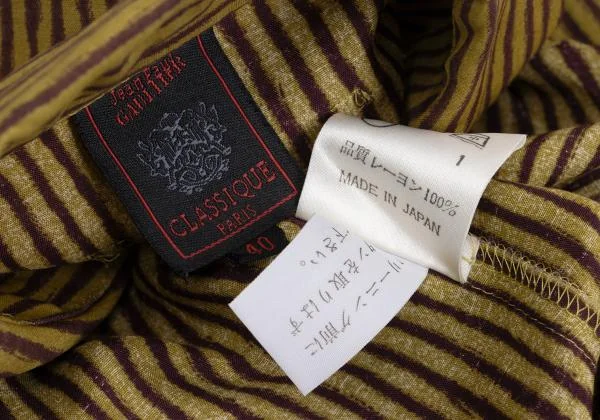 Jean Paul
GAULTIER
CLASSIQUE
PARIS
40
1
品質 レーヨン100%
MADE IN JAPAN
リーニング前に
タンを取りはず
下さい。